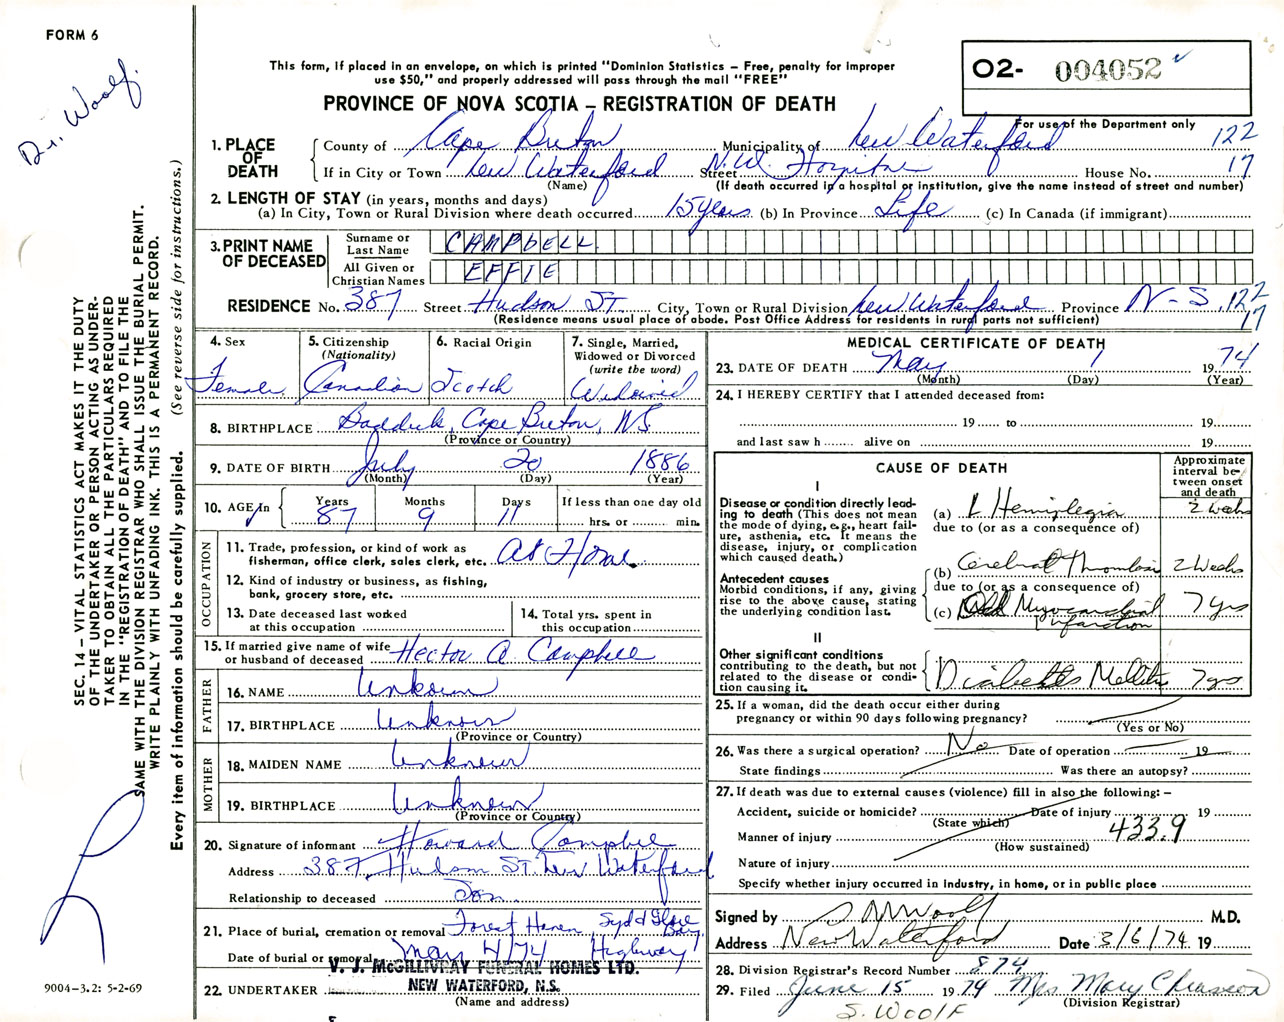 FORM 6
Dr. Woolf.
This form, if placed in an envelope, on which is printed "Dominion Statistics – Free, penalty for improper
use $50," and properly addressed will pass through the mail "FREE"
PROVINCE OF NOVA SCOTIA – REGISTRATION OF DEATH
02- 004052
For use of the Department only
122
17
1. PLACE OF DEATH
County of Cape Breton Municipality of New Waterford
If in City or Town New Waterford Street N.W. Hospital House No.
(Name) (If death occurred in a hospital or institution, give the name instead of street and number)
2. LENGTH OF STAY (in years, months and days)
(a) In City, Town or Rural Division where death occurred 15 years (b) In Province Life (c) In Canada (if immigrant)
3. PRINT NAME OF DECEASED
Surname or Last Name CAMPBELL
All Given or Christian Names EFFIE
RESIDENCE No. 387 Street Hudson ST. City, Town or Rural Division New Waterford Province N-S. 122
17
(Residence means usual place of abode. Post Office Address for residents in rural parts not sufficient)
4. Sex
Female
5. Citizenship
(Nationality)
Canadian
6. Racial Origin
Scotch
7. Single, Married,
Widowed or Divorced
(write the word)
Widowed
8. BIRTHPLACE Baddeck, Cape Breton, N.S.
(Province or Country)
9. DATE OF BIRTH July 20 1886
(Month) (Day) (Year)
10. AGE In
Years Months Days If less than one day old
87 9 11 hrs. or min.
OCCUPATION
11. Trade, profession, or kind of work as
fisherman, office clerk, sales clerk, etc. At Home
12. Kind of industry or business, as fishing,
bank, grocery store, etc.
13. Date deceased last worked
at this occupation
14. Total yrs. spent in
this occupation
15. If married give name of wife
or husband of deceased Hector A. Campbell
FATHER
16. NAME Unknown
17. BIRTHPLACE Unknown
(Province or Country)
MOTHER
18. MAIDEN NAME Unknown
19. BIRTHPLACE Unknown
(Province or Country)
20. Signature of informant Howard Campbell
Address 387 Hudson ST. New Waterford
Relationship to deceased Son
21. Place of burial, cremation or removal Forest Haven, Syd & Glace Bay,
Date of burial or removal May 4/74 Highway
22. UNDERTAKER
V. J. McGILLIVRAY FUNERAL HOMES LTD.
NEW WATERFORD, N.S.
(Name and address)
MEDICAL CERTIFICATE OF DEATH
23. DATE OF DEATH May 1 1974
(Month) (Day) (Year)
24. I HEREBY CERTIFY that I attended deceased from:
19 to 19
and last saw h alive on 19
CAUSE OF DEATH
Approximate
interval be-
tween onset
and death
I
Disease or condition directly lead-
ing to death (This does not
mean the mode of dying, e.g., heart fail-
ure, asthenia, etc. It means the
disease, injury, or complication
which caused death.)
(a) L Hemiplegia 2 weeks
due to (or as a consequence of)
Antecedent causes
Morbid conditions, if any, giving
rise to the above cause, stating
the underlying condition last.
(b) Cerebral Thrombosis 2 Weeks
due to (or as a consequence of)
(c) Old Myocardial infarction 7 yrs
II
Other significant conditions
contributing to the death, but not
related to the disease or condi-
tion causing it.
Diabetes Mellitus 7 yrs
25. If a woman, did the death occur either during
pregnancy or within 90 days following pregnancy?
(Yes or No)
26. Was there a surgical operation? No Date of operation 19
State findings Was there an autopsy?
27. If death was due to external causes (violence) fill in also the following: –
Accident, suicide or homicide? Date of injury 19
(State which)
Manner of injury 433.9
(How sustained)
Nature of injury
Specify whether injury occurred in industry, in home, or in public place
Signed by S M Woolf M.D.
Address New Waterford Date 3/6/74 19
28. Division Registrar's Record Number 874
29. Filed June 15 1974 Mrs Mary Chiasson
(Division Registrar)
S. WOOLF
SEC. 14 – VITAL STATISTICS ACT MAKES IT THE DUTY
OF THE UNDERTAKER OR PERSON ACTING AS UNDER-
TAKER TO OBTAIN ALL THE PARTICULARS REQUIRED
IN THE "REGISTRATION OF DEATH" AND TO FILE THE
SAME WITH THE DIVISION REGISTRAR WHO SHALL ISSUE THE BURIAL PERMIT.
WRITE PLAINLY WITH UNFADING INK. THIS IS A PERMANENT RECORD.
Every item of information should be carefully supplied. (See reverse side for instructions.)
9004-3.2: 5-2-69